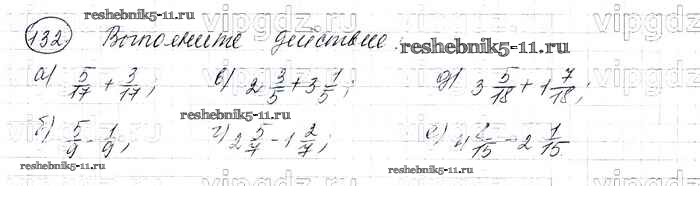 reshebnik5-11.ru
132. Выполните действие. reshebnik5-11.ru
а) 5/17 + 3/17; в) 2 3/5 + 3 1/5; д) 3 5/18 + 1 7/18;
reshebnik5-11.ru
б) 5/9 - 1/9; г) 2 5/7 - 1 2/7; е) /15 - 2 1/15.
reshebnik5-11.ru
reshebnik5-11.ru